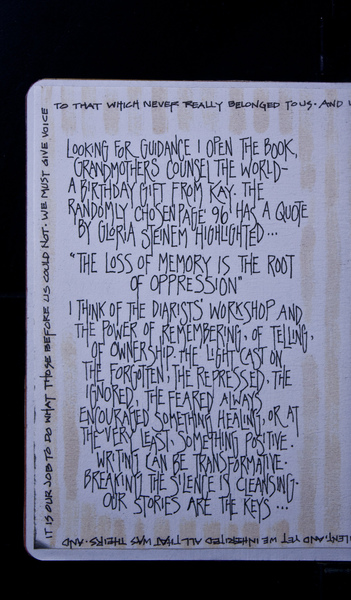 TO THAT WHICH NEVER REALLY BELONGED TO US. AND
LOOKING FOR GUIDANCE I OPEN THE BOOK,
GRANDMOTHERS COUNSEL THE WORLD-
A BIRTHDAY GIFT FROM KAY. THE
RANDOMLY CHOSEN PAGE 96 HAS A QUOTE
BY GLORIA STEINEM HIGHLIGHTED...
"THE LOSS OF MEMORY IS THE ROOT
OF OPPRESSION"
I THINK OF THE DIARISTS' WORKSHOP AND
THE POWER OF REMEMBERING, OF TELLING,
OF OWNERSHIP. THE "LIGHT" CAST ON
THE FORGOTTEN, THE REPRESSED, THE
IGNORED, THE FEARED ALWAYS
ENCOURAGED SOMETHING HEALING, OR AT
THE VERY LEAST, SOMETHING POSITIVE.
WRITING CAN BE TRANSFORMATIVE.
BREAKING THE SILENCE IS CLEANSING.
OUR STORIES ARE THE KEYS...
ILENT, AND YET WE INHERITED ALL THAT WAS THEIRS. AND.
IT IS OUR JOB TO DO WHAT THOSE BEFORE US COULD NOT. WE MUST GIVE VOICE